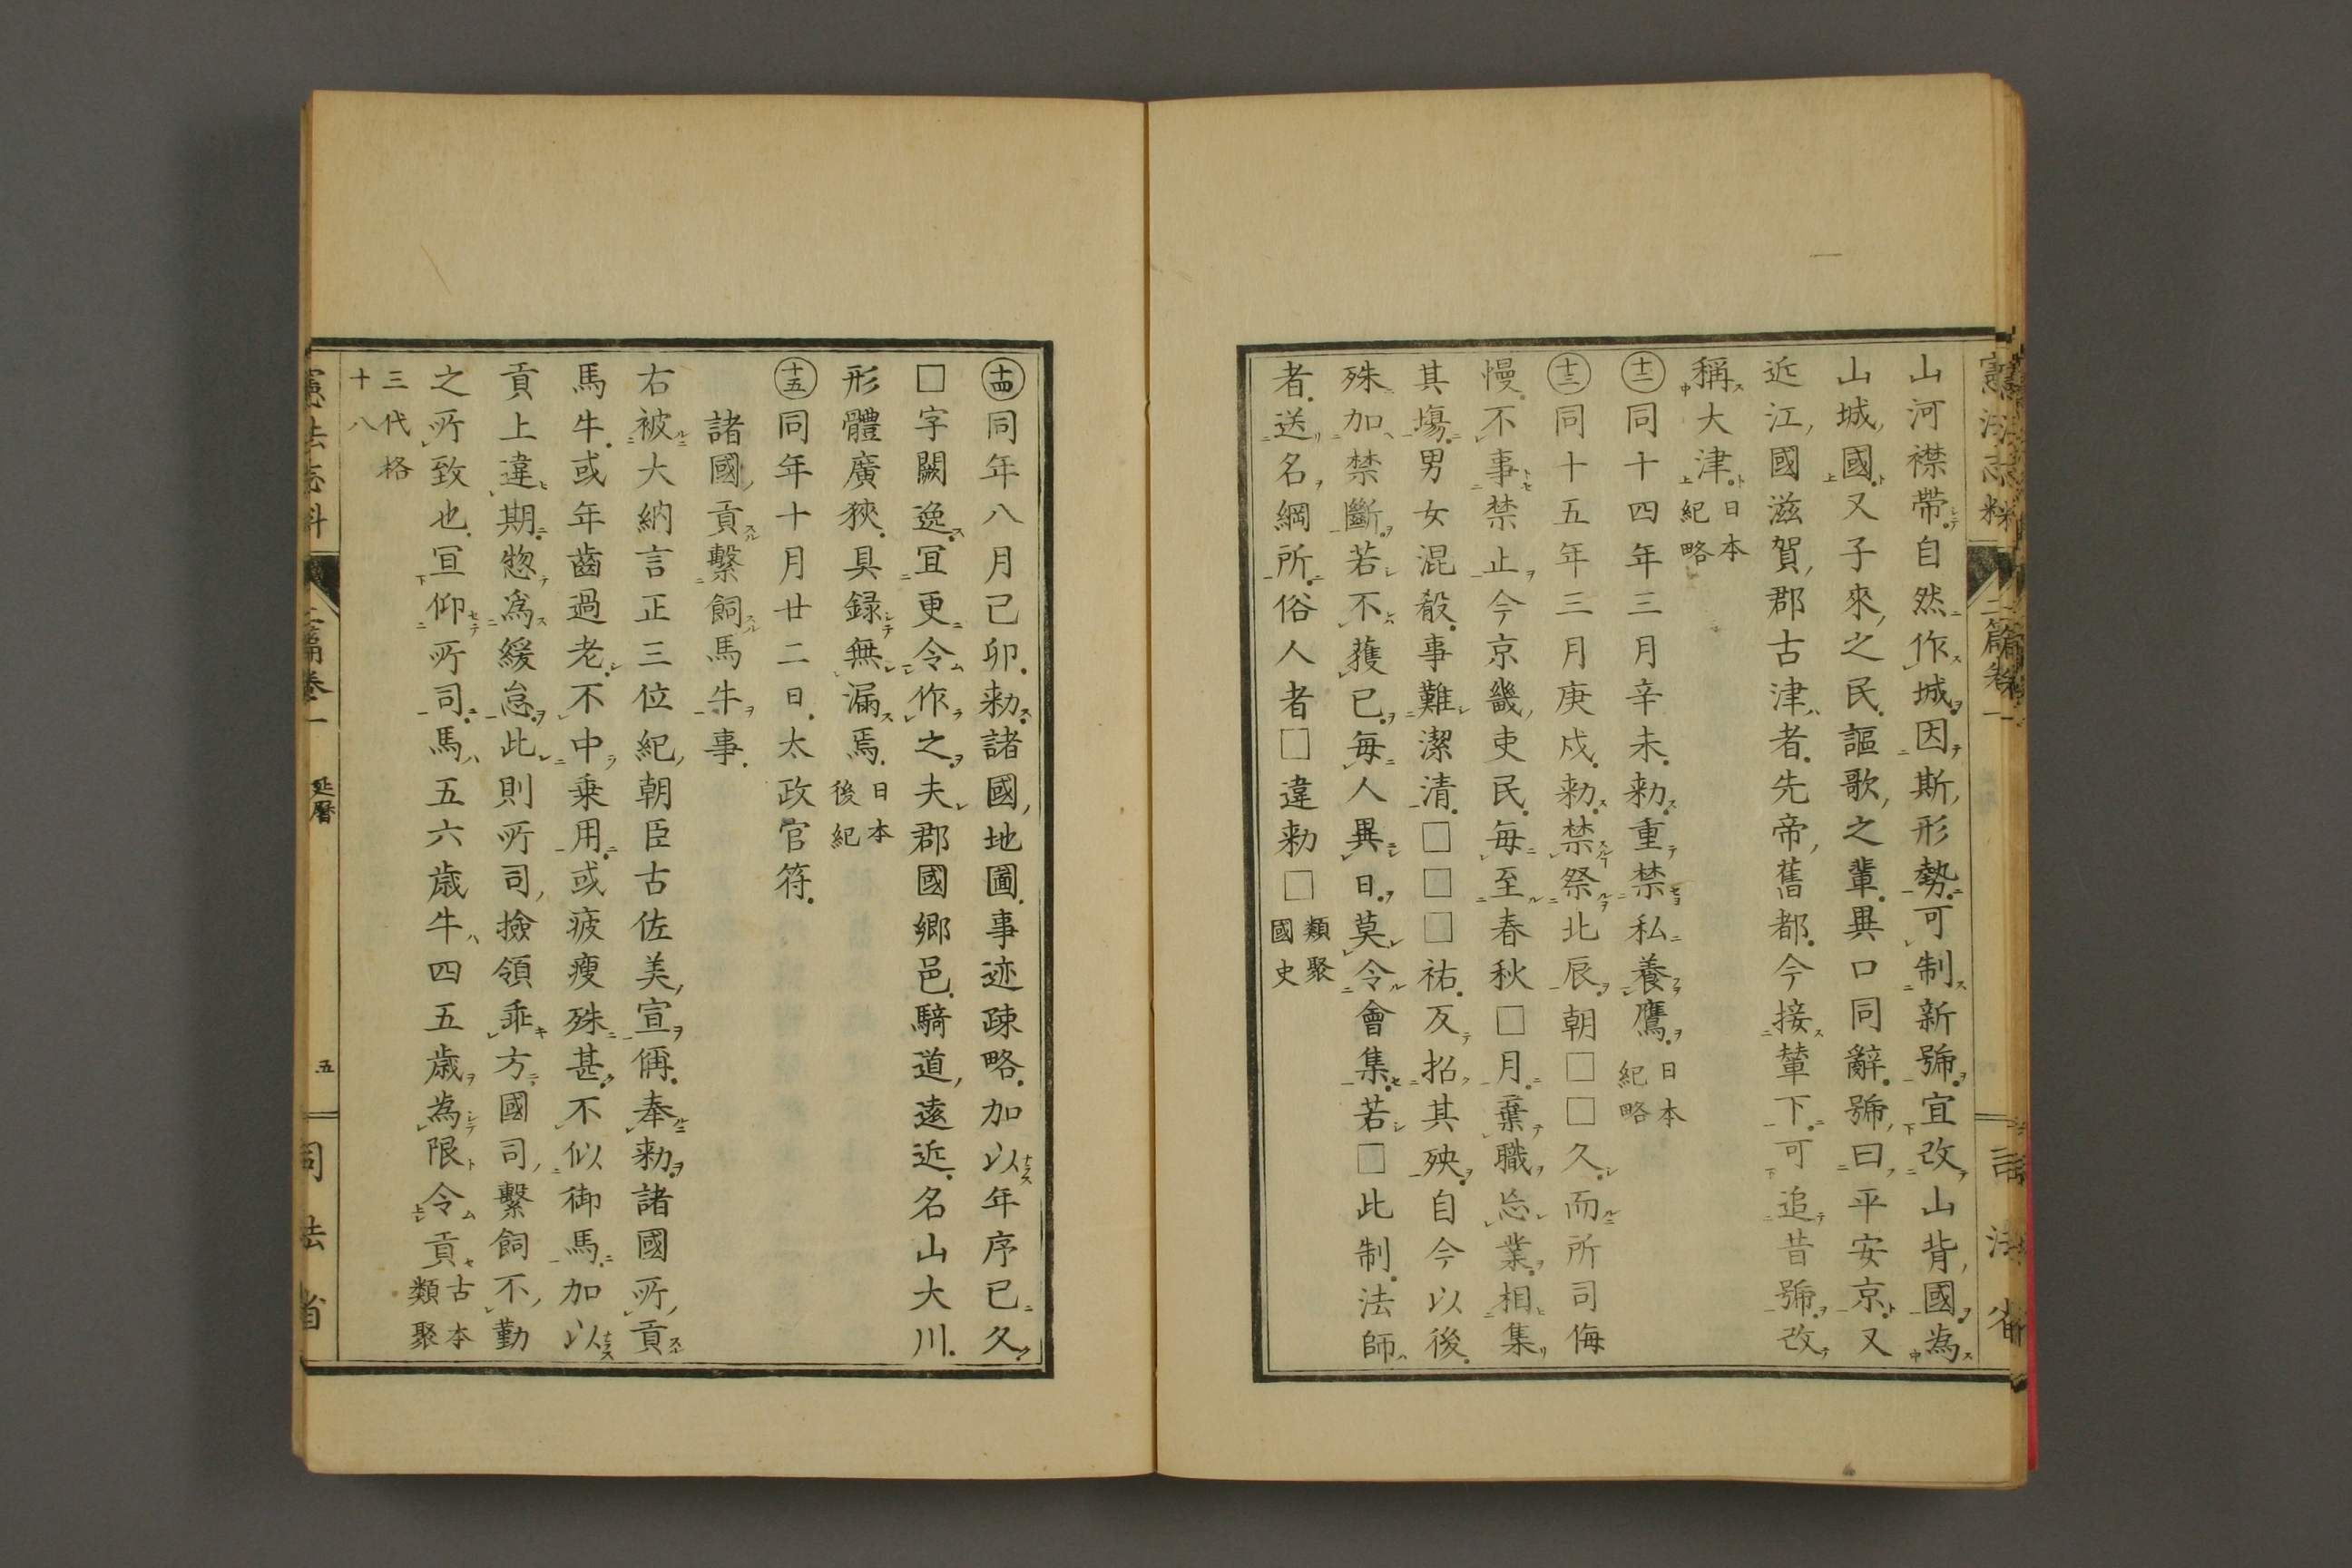 山河襟帶自然作城因斯形勢可制新號宜改山背國為
山城國又子來之民謳歌之輩異口同辭號曰平安京又
近江國滋賀郡古津者先帝舊都今接輦下可追昔號改
稱大津日本紀略
十二同十四年三月辛未勅重禁私養鷹日本紀略
十三同十五年三月庚戌勅禁祭北辰朝□□久而所司侮
慢不事禁止今京畿吏民毎至春秋□月棄職忘業相集
其塲男女混殽事難潔清□□□祐反招其殃自今以後
殊加禁斷若不獲已毎人異日莫令會集若□此制法師
者送名綱所俗人者□違勅□類聚國史
十四同年八月己卯勅諸國地圖事迹疎略加以年序已久
□字闕逸宜更令作之夫郡國郷邑驛道遠近名山大川
形體廣狹具録無漏焉日本後紀
十五同年十月廿二日太政官符
諸國貢繫飼馬牛事
右被大納言正三位紀朝臣古佐美宣偁奉勅諸國所貢
馬牛或年齒過老不中乗用或疲瘦殊甚不似御馬加以
貢上違期惣爲緩怠此則所司撿領乖方國司繫飼不勤
之所致也宜仰所司馬五六歳牛四五歳為限令貢古本類聚
三代格十八
延暦
五